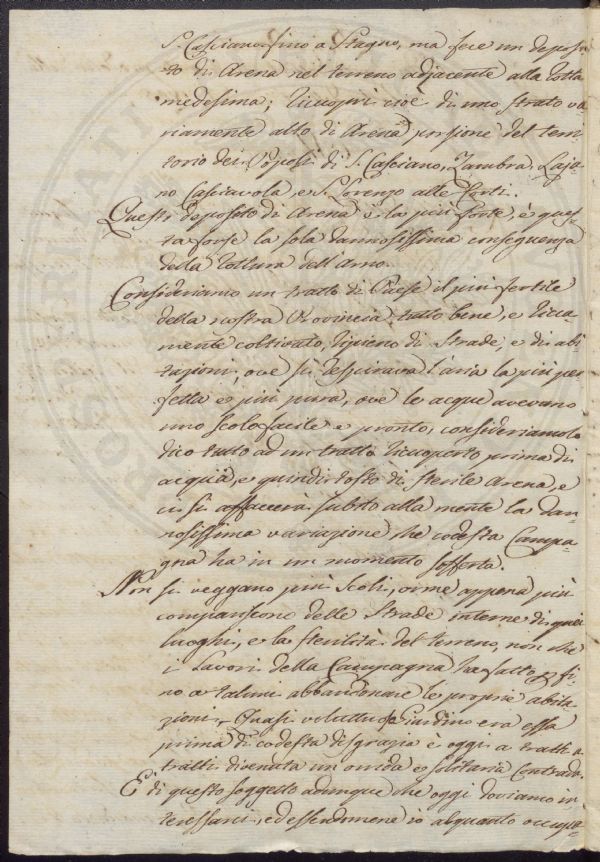 S. Casciano fino a Stagno, ma fece un deposi
to di Arena nel terreno adjacente alla rotta
medesima; ricuoprì cioè di uno strato va
riamente alto di Arena porzione del terri
torio dei Popoli di S. Casciano, Zambra, Laja
no Casciavola, e S. Lorenzo alle Corti.
Questo deposito di Arena è la più forte, è ques
ta forse la sola dannosissima conseguenza
della rottura dell'Arno.
Consideriamo un tratto di Paese il più fertile
della nostra Provincia, tutto bene, e ricca
mente coltivato, ripieno di Strade, e di abi
tazioni, ove si respirava l'aria la più per
fetta e più pura, ove le acque avevano
uno scolo facile e pronto, consideriamolo
dico tutto ad un tratto ricuoperto prima di
acqua, e quindi tosto di sterile Arena, e
ci si affaccerà subito alla mente la dan
nosissima variazione che codesta Campa
gna ha in un momento sofferta.
Non si veggano più Scoli, orme appena più
compariscono delle Strade interne di quei
luoghi, e la sterilità del terreno, non che
i lavori della Campagna ha fatto fi
no a taluni abbandonare le proprie abita
zioni. Quasi voluttuoso Giardino era essa
prima di codesta disgrazia è oggi a tratti a
tratti divenuta un orrida e solitaria Contrada.
È di questo soggetto adunque che oggi doviamo in
teressarci, ed essendomene io alquanto occupa